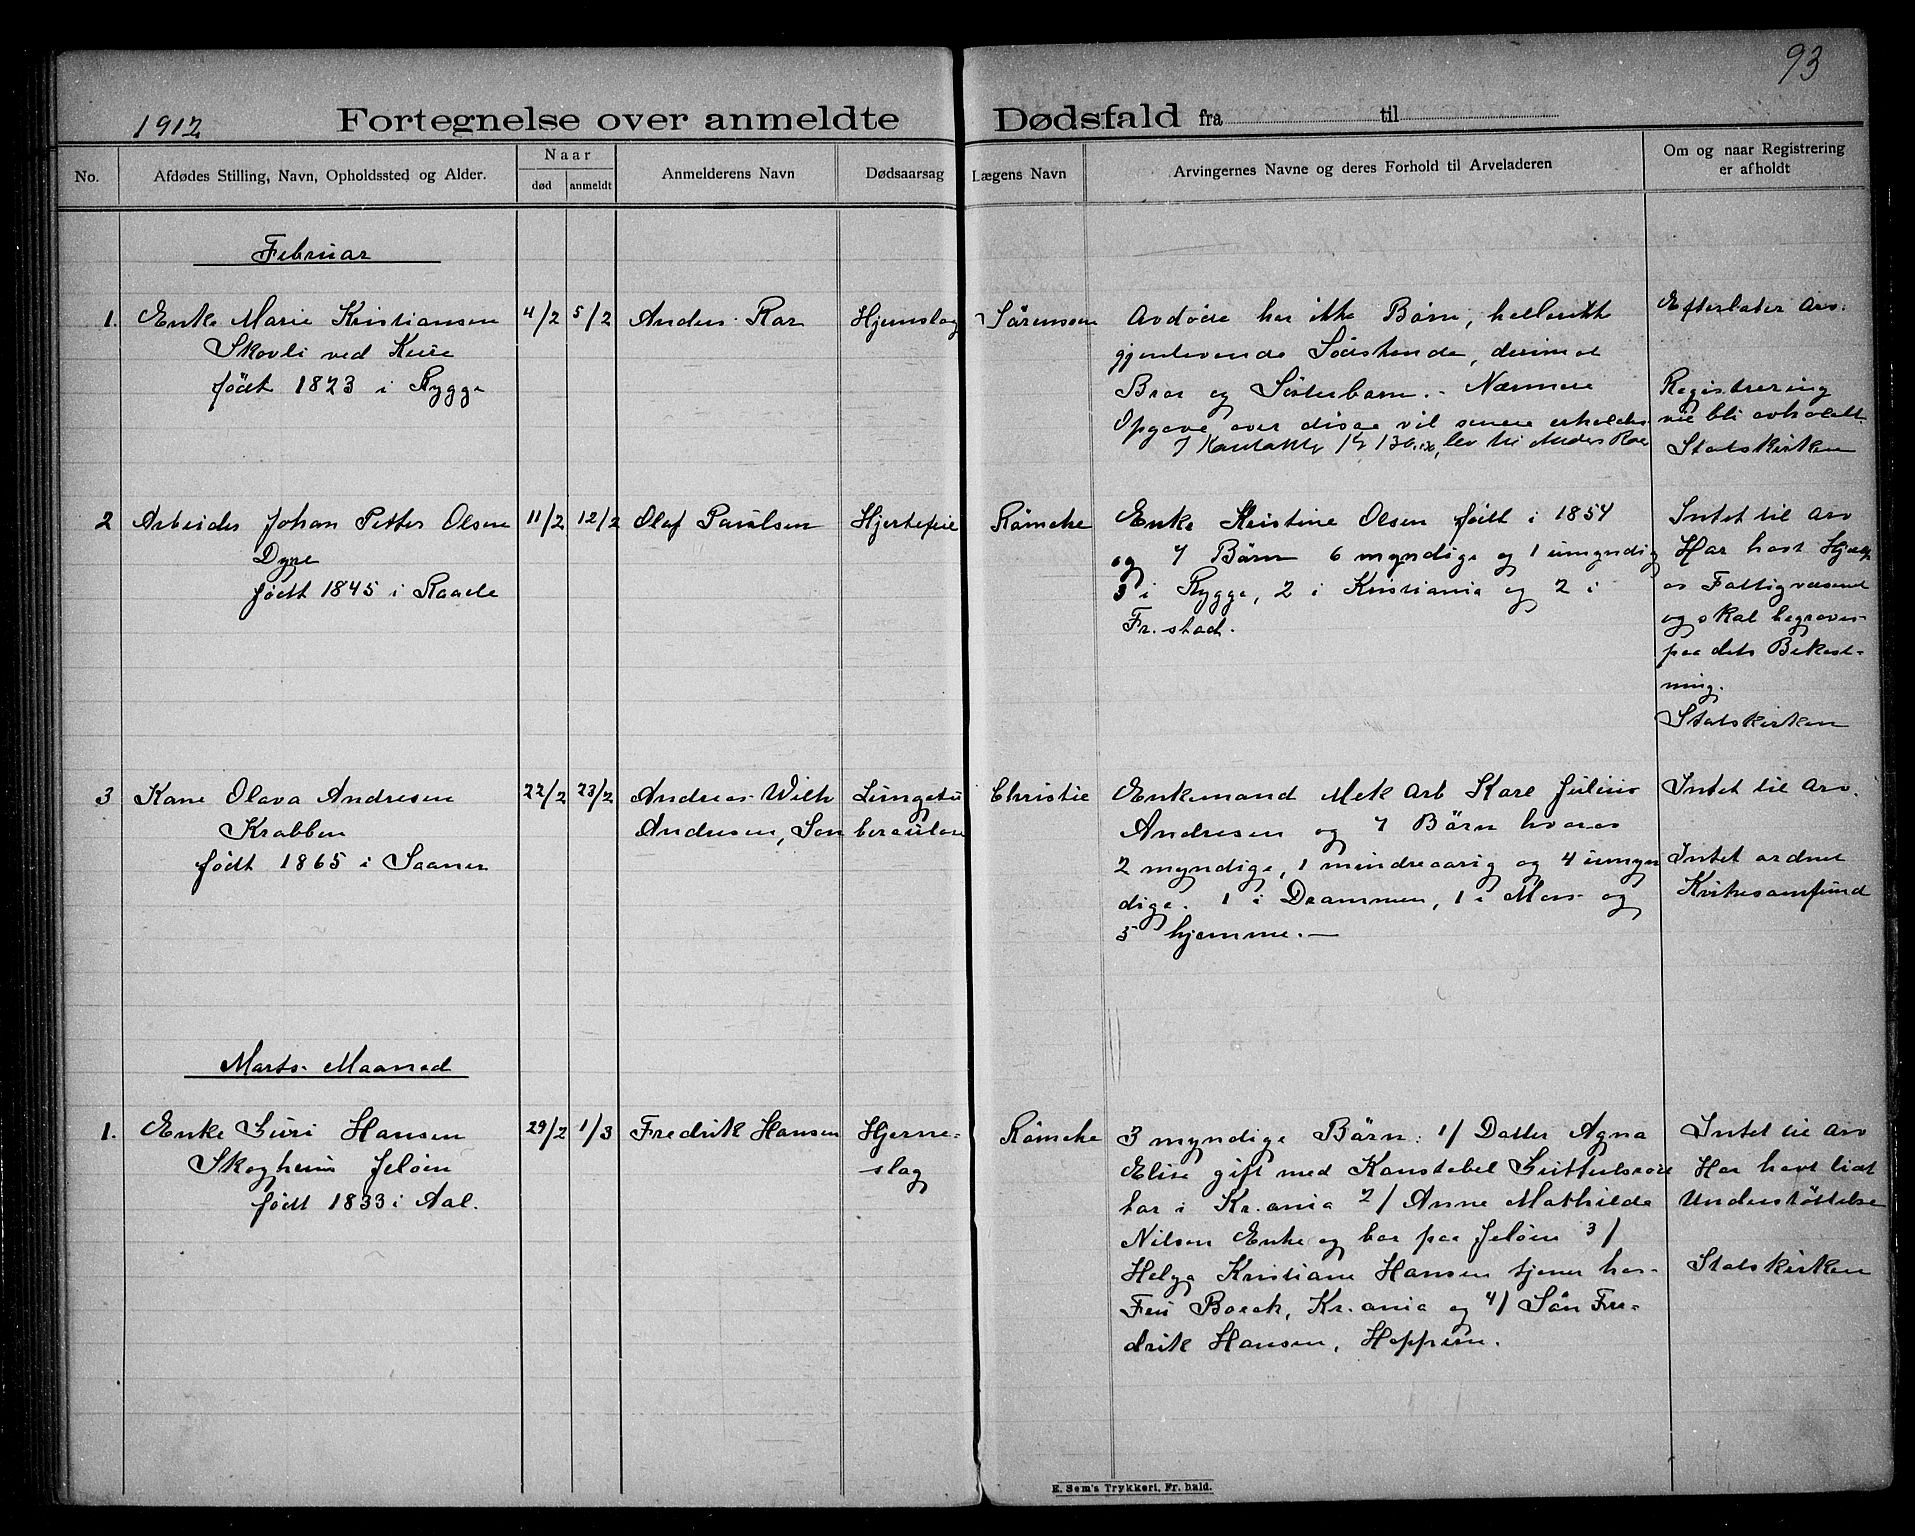 93
1912 Fortegnelse over anmeldte Dødsfald fra til
No. Afdødes Stilling, Navn, Opholdssted og Alder. Naar død anmeldt Anmelderens Navn Dødsaarsag Lægens Navn Arvingernes Navne og deres Forhold til Arveladeren Om og naar Registrering er afholdt
Februar
1. Enke Marie Kristiansen
Skovli ved Kure
født 1823 i Rygge
4/2 5/2
Anders Roer
Hjernslag
Sørenssen
Avdøde har ikke Børn, heller ikke
gjenlevende Sødskende, derimot
Bror og Søsterbarn. - Nærmere
Opgave over disse vil senere erholdes
lev til Anders Roer
Efterlater arv.
Registrering
vil bli avholdt.
Statskirken
2 Arbeider Johan Petter Olsen
Dyre
født 1845 i Raade
11/2 12/2
Olaf Paulsen
Hjertefeil
Römcke
Enke Kristine Olsen født i 1854
og 7 Børn 6 myndige og 1 umyndig
3 i Rygge, 2 i Kristiania og 2 i
Fr.stad.
Intet til arv
Har hat Hjælp
av Fattigvæsenet
og skal begraves
paa dets Bekost-
ning.
Statskirken
3 Kone Olava Andresen
Krabben
født 1865 i Saaner
22/2 23/2
Andreas Wilh
Andresen, Søn
Lungetu
berculose
Christie
Enkemand Mek Arb Karl Julius
Andresen og 7 Børn hvorav
2 myndige, 1 mindreaarig og 4 umyn
dige. 1 i Drammen, 1 i Moss og
5 hjemme. -
Intet til arv.
Intet ordnet
Kirkesamfund
Marts Maaned
1. Enke Guri Hansen
Skogheim Jeløen
født 1833 i Aal.
29/2 1/3
Fredrik Hansen
Hjerne-
slag
Römcke
3 myndige Børn: 1/ Datter Agna
Elise gift med Konstabel
bor i Kr.ania 2/ Anne Mathilde
Nilsen Enke og bor paa Jeløen 3/
Helga Kristiane Hansen tjener hos
Fru Boeck, Kr.ania og 4/ Søn Fre-
drik Hansen, Hoppern.
Intet til arv
Har havt litt
Understøttelse
Statskirken
E. Sem's Trykkeri, Fr. hald.